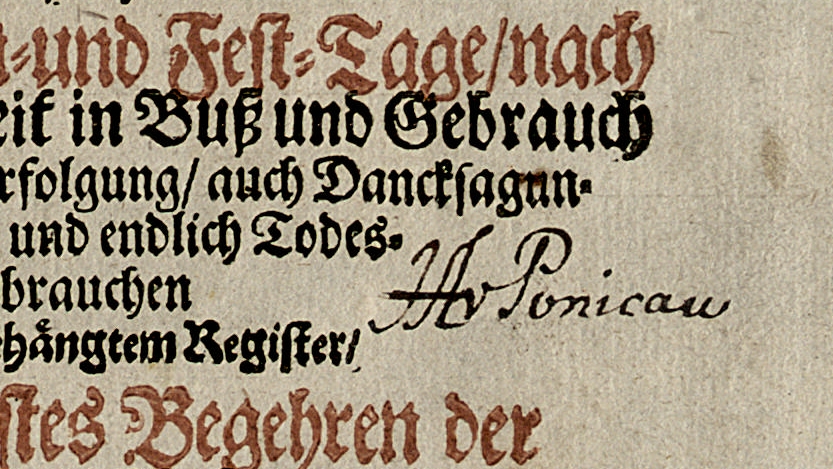 und Fest-Tage/nach
in Buß und Gebrauch
rfolgung/ auch Dancksagun-
und endlich Todes-
brauchen
HAv Ponicau
hängtem Register/
Begehren der